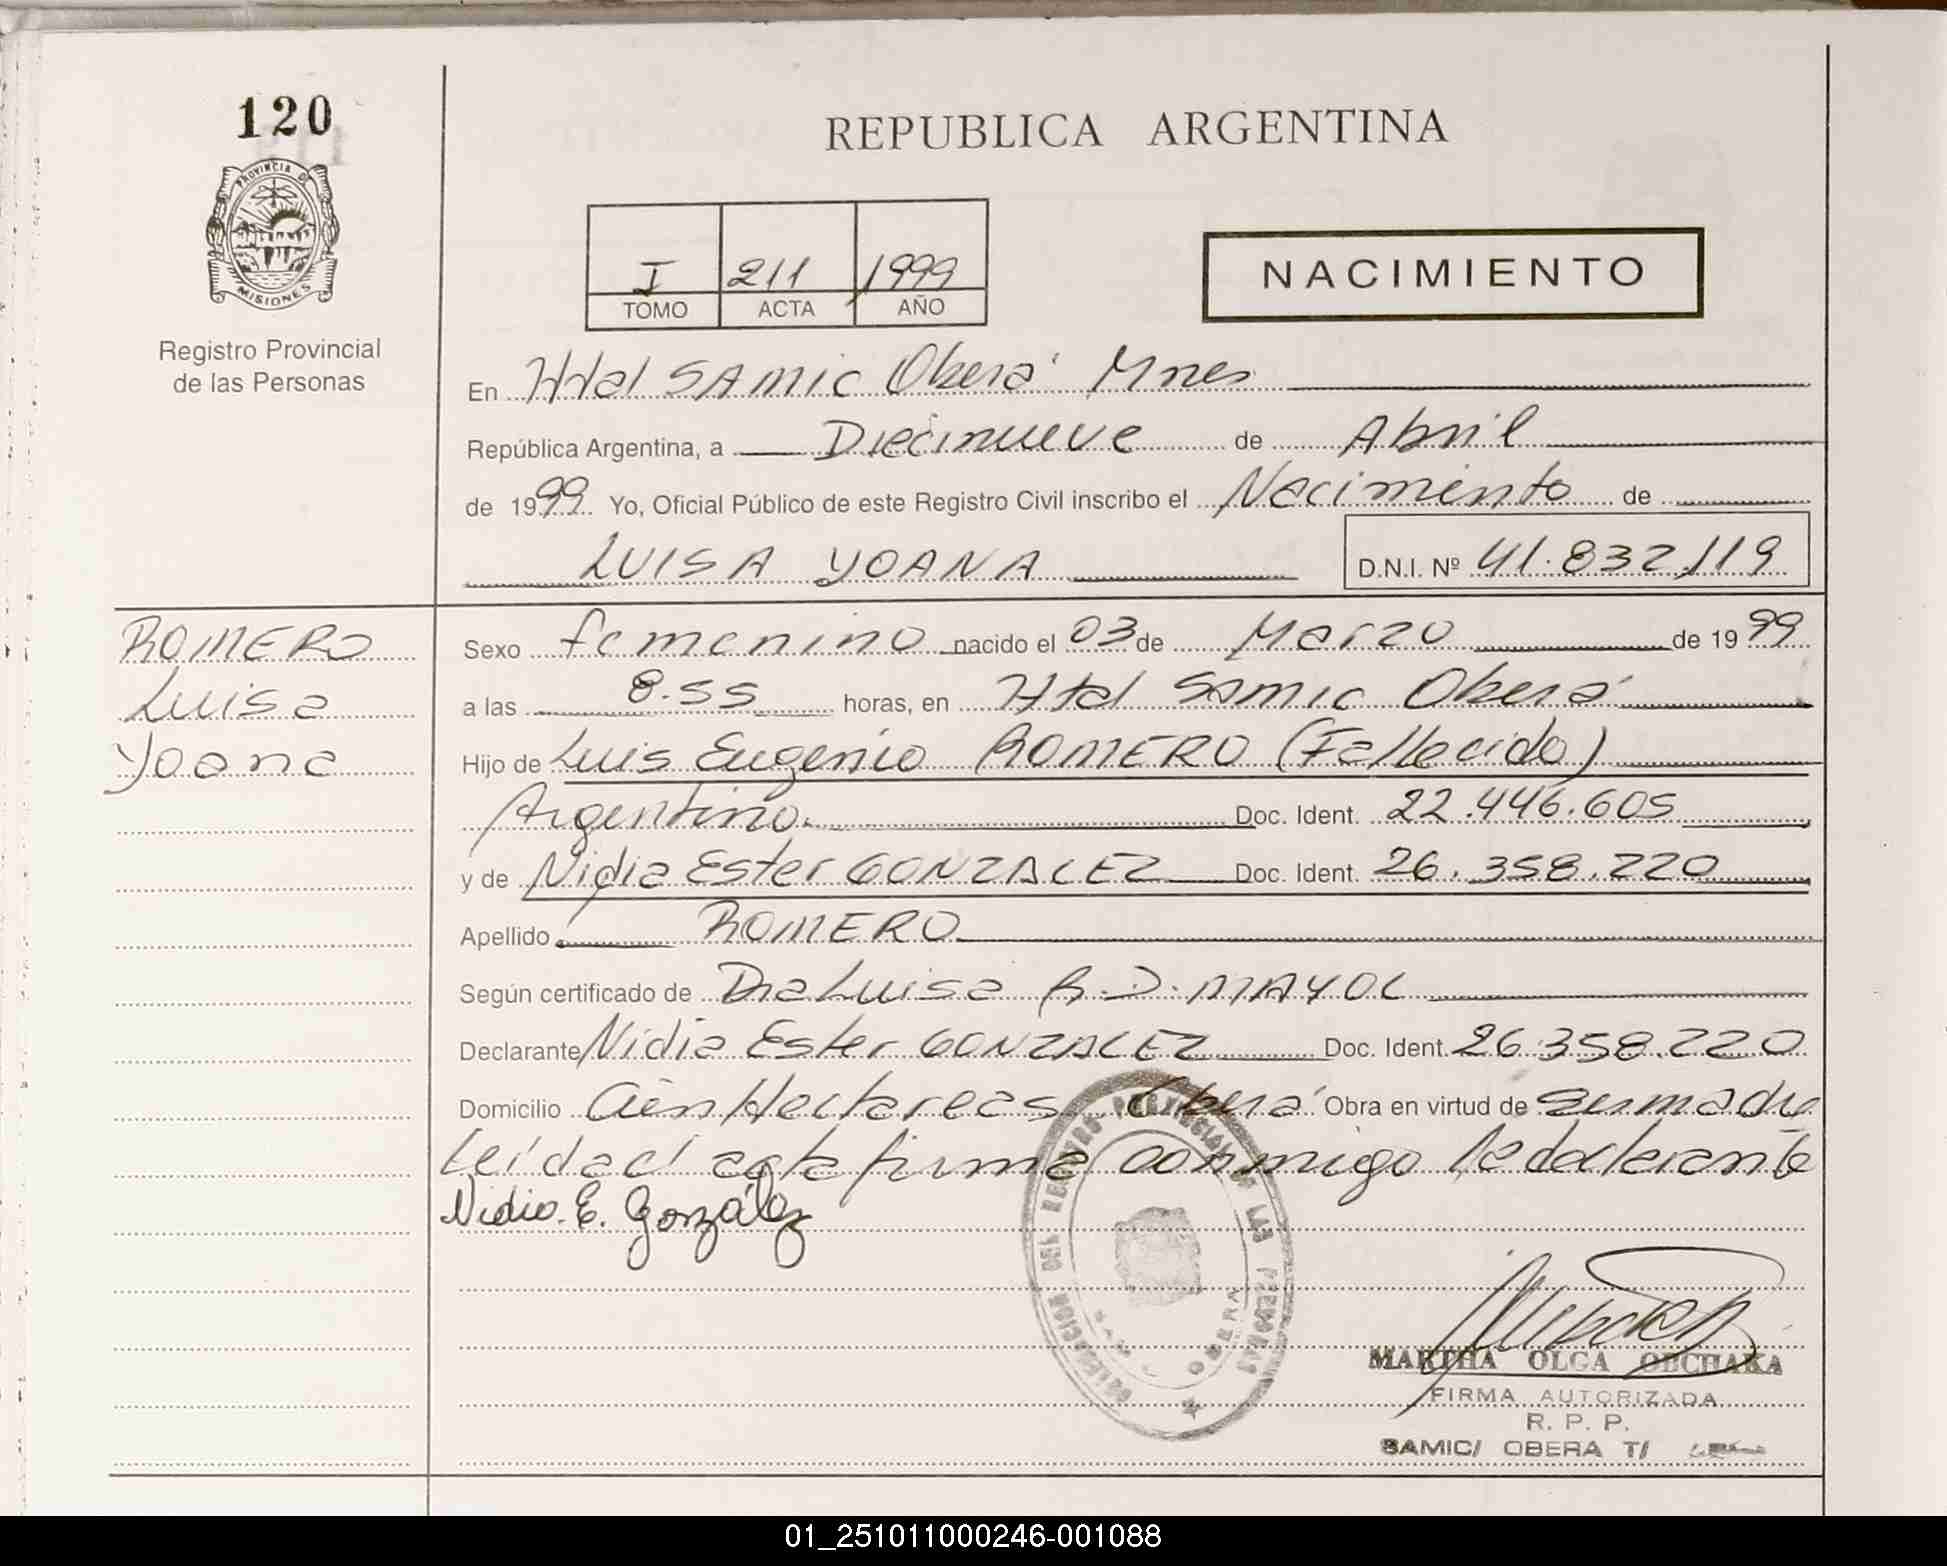 120
PROVINCIA DE
MISIONES
Registro Provincial
de las Personas
REPUBLICA ARGENTINA
I 211 1999
TOMO ACTA AÑO
NACIMIENTO
En Htal SAMIC Oberá Mnes
República Argentina, a Diecinueve de Abril
de 1999 Yo, Oficial Público de este Registro Civil inscribo el Nacimiento de
LUISA YOANA D.N.I. Nº 41.832.119
ROMERO
Luisa
Yoana
Sexo femenino nacido el 03 de Marzo de 1999
a las 8.55 horas, en Htal Samic Oberá
Hijo de Luis Eugenio ROMERO (Fallecido)
Argentino. Doc. Ident. 22.446.605
y de Nidia Ester GONZALEZ Doc. Ident. 26.358.220
Apellido ROMERO
Según certificado de Dra Luisa R.D. MAYOL
Declarante Nidia Ester GONZALEZ Doc. Ident. 26.358.220
Domicilio Cien Hectareas Oberá Obra en virtud de ser madre
Leida el acta firma conmigo la declarante
Nidia E. González
DELEGACION DEL REGISTRO PROVINCIAL DE LAS PERSONAS
OBERA
MARTHA OLGA OBCHAKA
FIRMA AUTORIZADA
R. P. P.
SAMIC/ OBERA T/
01_251011000246-001088